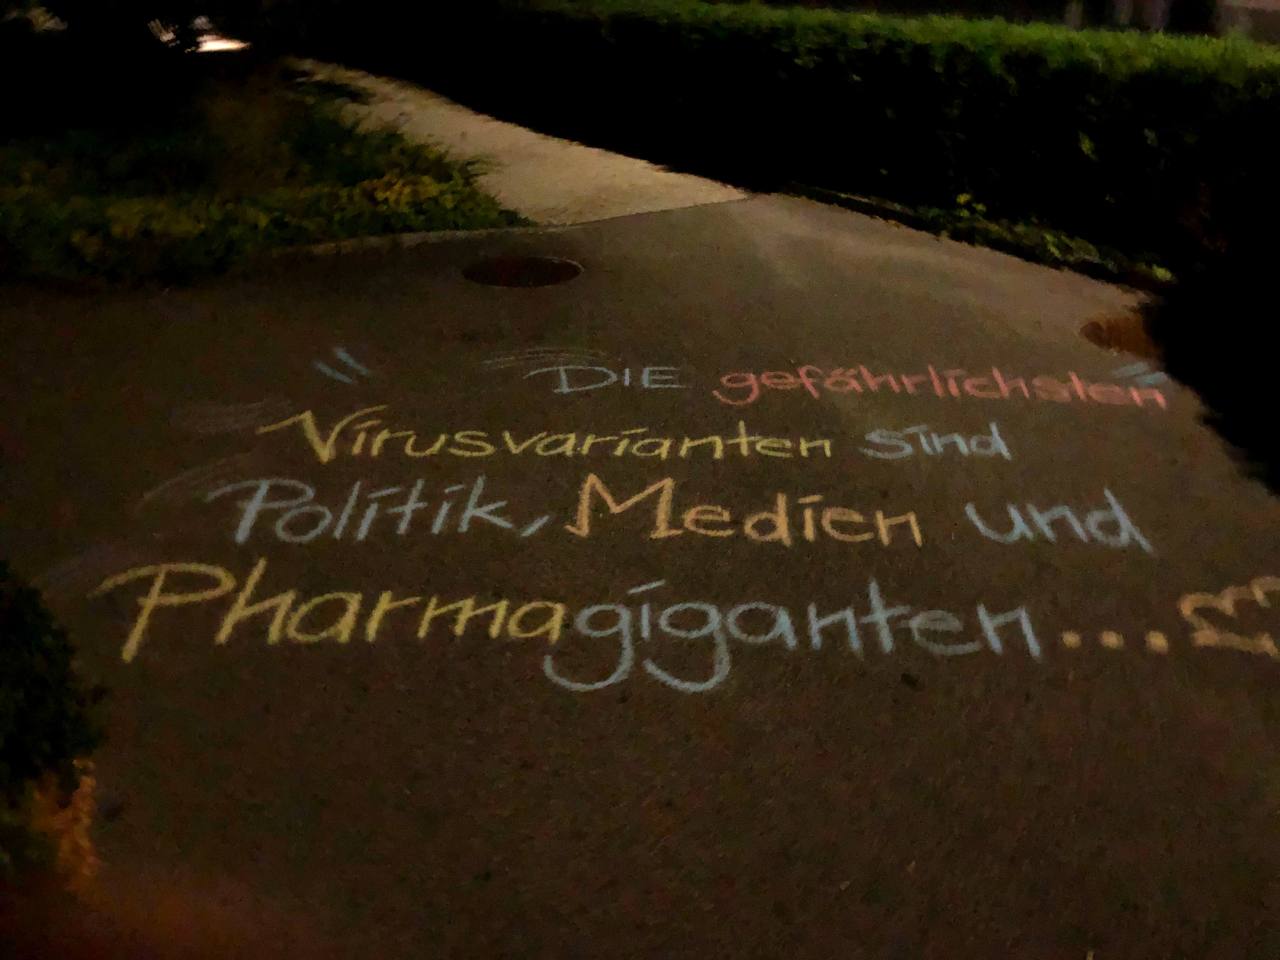 " DIE gefährlichsten "
Virusvarianten sind
Politik, Medien und
Pharmagiganten...